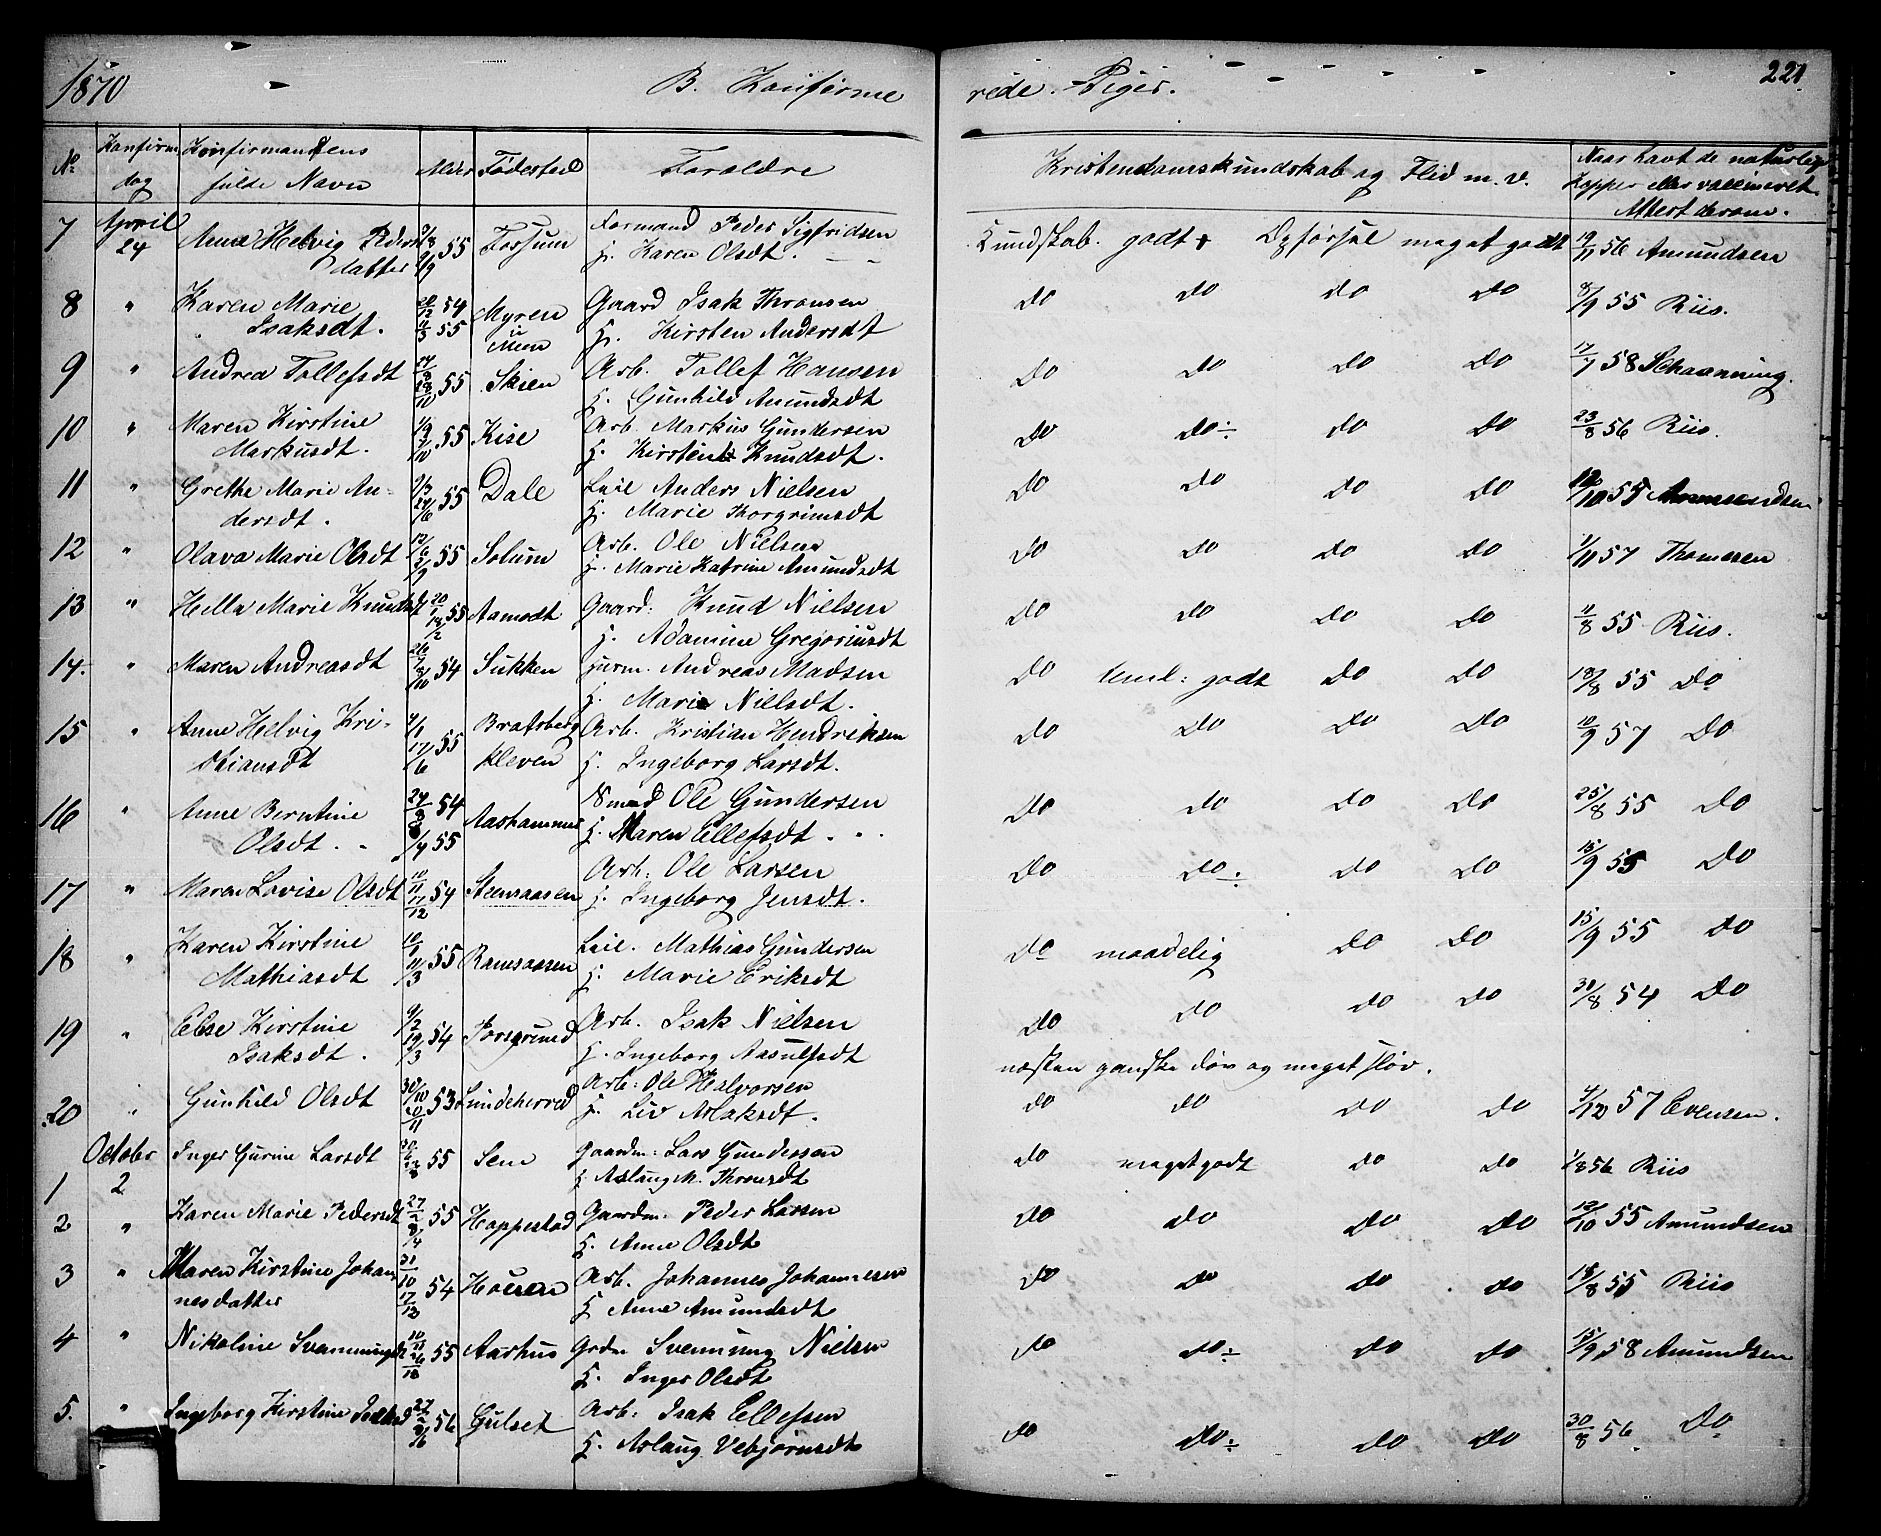 1870 B. Konfirme rede Piger. 221.
No Konfirm. dag Konfirmandens fulde Navn Alder Fødested Forældre Kristendomskundskab og Flid m. v. Naar havt de naturlige Kopper eller vaccineret. Attest derom.
7 April 24 Anne Helvig Peders datter 55 Fossum Formand Peder Sigfridsen H. Karen Olsdt. Kundskab. godt + Opførsel meget godt 19/11 56 Amundsen
8 " Karen Marie Isaksdt. 20/12 54 11/3 55 Myren i Mien Gaard Isak Thronsen H. Kirsten Andersdt Do Do Do Do 8/9 55 Riis.
9 " Andrea Tollefsdt 55 Skien Arb. Tollef Hansen H. Gunhild Amundsdt Do Do Do Do 17/7 58 Schaanning.
10 " Maren Kirstine Markusdt. 55 Kise Arb. Markus Gundersen H. Kirstine Knudsdt. Do Do ÷ Do Do 23/8 56 Riis.
11 " Grethe Marie An- dersdt. 55 Dale Leil Anders Nielsen H. Marie Thorgrimsdt Do Do Do Do 12/10 55 Amundsen
12 " Olava Marie Olsdt 55 Solum Arb. Ole Nielsen H. Marie Katrine Amundsdt Do Do Do Do 1/11 57 Thomesen
13 " Hella Marie Knudsdt 20/1 55 Aamodt Gaard: Knud Nielsen H. Adamine Gregoriusdt Do Do Do Do 11/8 55 Riis.
14. " Maren Andreasdt 54 Sukken Andreas Madsen H. Marie Nielsdt. Do teml: godt Do Do 18/8 55 Do
15 " Anne Helvig Kri- stiansdt 4/1 17/6 55 Bratsberg kleven Arb. Kristian Hendriksen H. Ingeborg Larsdt. Do Do Do Do 10/9 57 Do
16 " Anne Berntine Olsdt. 54 /4 55 Aashammer Ole Gundersen H. Maren Ellefsdt. Do Do Do Do 25/8 55 Do
17 " Maren Lovise Olsdt 10/11 17/12 54 Stensaasen Arb: Ole Larsen H. Ingeborg Jensdt. Do Do ÷ Do Do 15/9 55 Do
18 " Karen Kirstine Mathiasdt 10/1 11/3 55 Ramsaasen Leil. Mathias Gundersen H. Marie Eriksdt Do maadelig Do Do 15/9 55 Do
19 " Else Kirstine Isaksdt. 9/2 19/3 54 Porsgrund Arb. Isak Nielsen H. Ingeborg Aasulfsdt Do Do Do Do 30/8 54 Do
næsten ganske døv og meget sløv.
20 " Gunhild Olsdt 30/10 53 Lundeherred Arb: Ole Halvorsen H. Liv Aslaksdt. Do Do Do Do 4/12 57 Evensen.
1 October 2 Inger Gurine Larsdt 55 Sem Gaardm: Lars Gundersen H. Aslaug M. Thronsdt Do meget godt Do Do 1/8 56 Riis
2 " Karen Marie Pedersdt 55 Hoppestad Gaardm. Peder Larsen H. Anne Olsdt Do Do Do Do 12/10 55 Amundsen
3 " Maren Kirstine Johan nesdatter 31/10 17/12 54 Arb. Johannes Johannesen H. Anne Amundsdt Do Do Do Do 18/8 55 Riis
4 " Nikoline Svennungsdt 55 Aarhus Grdm Svennung Nielsen H. Inger Olsdt Do Do ÷ Do Do 15/9 58 Amundsen
5. " Ingeborg Kirstine Isaksd 56 Gulset Arb: Isak Ellefsen H. Aslaug Vebjørnsdt Do Do ÷ Do Do 30/8 56. Do